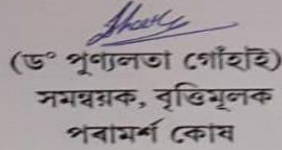 (ড° পূণ্যলতা গোঁহাই)
সমন্বয়ক, বৃত্তিমূলক
পৰামৰ্শ কোষ